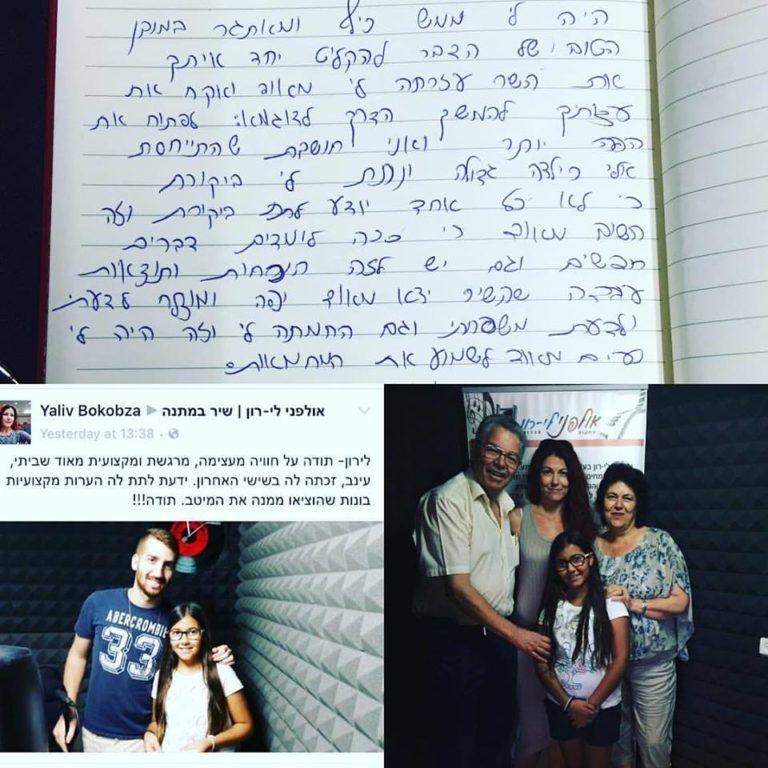 היה לי ממש כיף ומאתגר במובן
הטוב של הדבר להקליט יחד איתך
את השיר עזרתה לי מאוד ואקח את
עצותיך להמשך הדרך לדוגמא: לפתוח את
הפה יותר ואני חושבת שהתייחסת
אלי כילדה גדולה ונתת לי ביקורת
כי לא כל אחד יודע לתת ביקורת וזה
חשוב מאוד כי ככה לומדים דברים
חדשים וגם יש לזה הוכחות ותוצאות
עובדה שהשיר יצא מאוד יפה ומוצלח לדעתי
ולדעת משפחתי וגם החמאתה לי וזה היה לי
נעים מאוד לשמוע את המחמאות.
Yaliv Bokobza ▶ אולפני לי-רון | שיר במתנה
Yesterday at 13:38 ·
לירון- תודה על חוויה מעצימה, מרגשת ומקצועית מאוד שביתי,
עינב, זכתה לה בשישי האחרון. ידעת לתת לה הערות מקצועיות
בונות שהוציאו ממנה את המיטב. תודה!!!
ABERCROMBIE
33
אולפני לי-רון